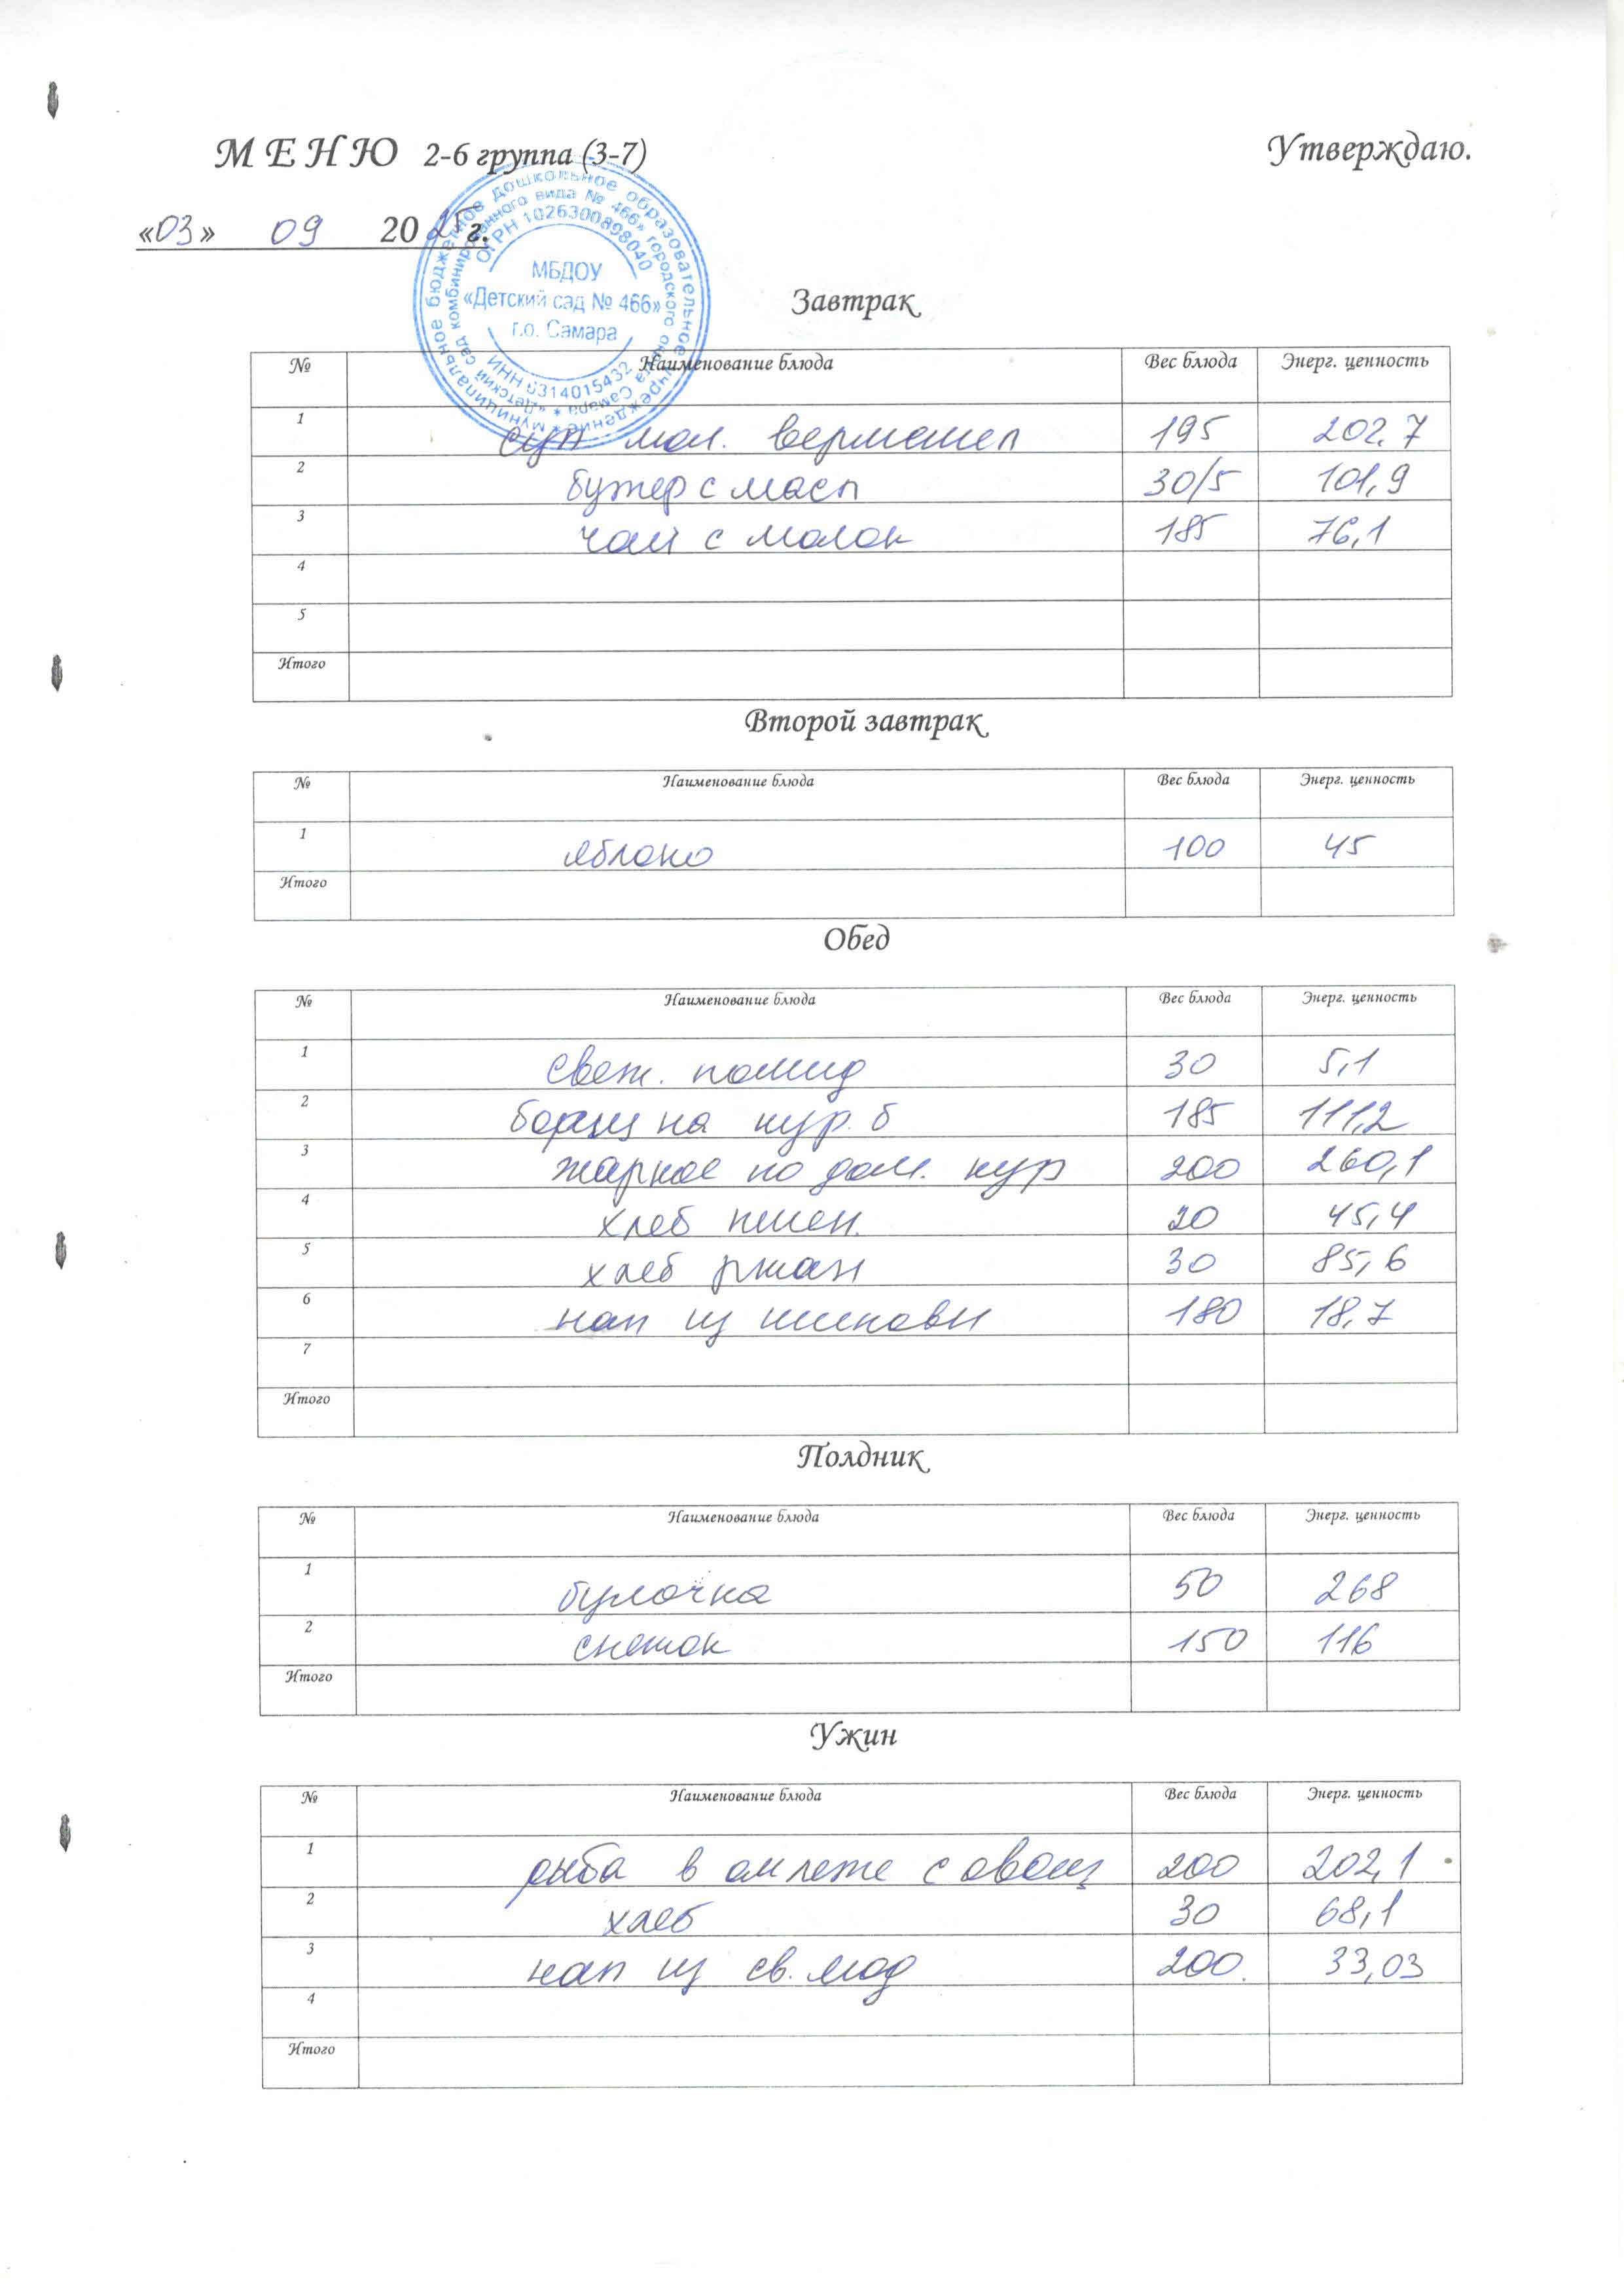 М Е Н Ю 2-6 группа (3-7)
Утверждаю.
«03» 09 2025 г.
муниципальное бюджетное дошкольное образовательное учреждение
«Детский сад комбинированного вида № 466» городского округа Самара
ОГРН 1026300898040
МБДОУ
«Детский сад № 466»
г.о. Самара
ИНН 6314015432
Завтрак
№ Наименование блюда Вес блюда Энерг. ценность
1 суп мол. вермешел 195 202.7
2 бутер с масл 30/5 101,9
3 чай с молок 185 76,1
4
5
Итого
Второй завтрак
№ Наименование блюда Вес блюда Энерг. ценность
1 яблоко 100 45
Итого
Обед
№ Наименование блюда Вес блюда Энерг. ценность
1 свеж. помид 30 5,1
2 борщ на кур. б 185 111,2
3 жаркое по дом. кур 200 260,1
4 хлеб пшен. 20 45,4
5 хлеб ржан 30 85,6
6 нап из шиповн 180 18,7
7
Итого
Полдник
№ Наименование блюда Вес блюда Энерг. ценность
1 булочка 50 268
2 снежок 150 116
Итого
Ужин
№ Наименование блюда Вес блюда Энерг. ценность
1 рыба в омлете с овощ 200 202,1
2 хлеб 30 68,1
3 нап из св. 200. 33,03
4
Итого